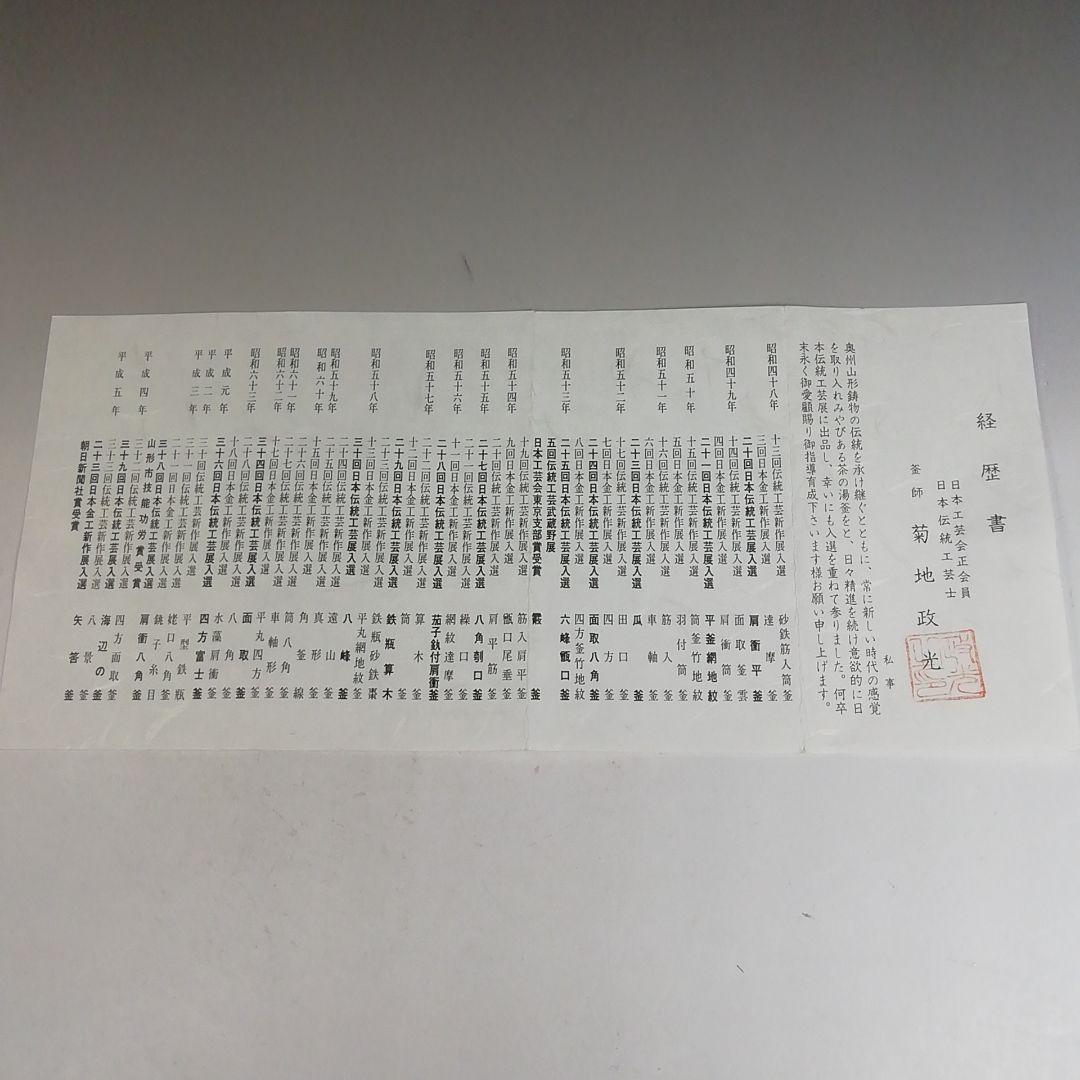 経歴書
日本工芸会正会員
日本伝統工芸士
釜師 菊地政光
私事
奥州山形鋳物の伝統を承け継ぐとともに、常に新しい時代の感覚
を取り入れみやびある茶の湯釜をと、日々精進を続け意欲的に日
本伝統工芸展に出品し、幸いにも入選を重ねて参りました。何卒
末永く御愛顧賜り御指導育成下さいます様お願い申し上げます。
昭和四十八年 十三回伝統工芸新作展入選 砂鉄筋入筒釜
三回日本金工新作展入選 達摩釜
二十回日本伝統工芸展入選 肩衝平釜
昭和四十九年 十四回伝統工芸新作展入選 面取釜雲
四回日本金工新作展入選 肩衝筒釜
二十一回日本伝統工芸展入選 平釜網地紋
昭和五十年 十五回伝統工芸新作展入選 筒釜竹地紋
五回日本金工新作展入選 羽付筒釜
昭和五十一年 十六回伝統工芸新作展入選 筋入釜
六回日本金工新作展入選 車軸釜
二十三回日本伝統工芸展入選 瓜釜
昭和五十二年 十七回伝統工芸新作展入選 田口釜
七回日本金工新作展入選 四方釜
二十四回日本伝統工芸展入選 面取八角釜
昭和五十三年 八回日本金工新作展入選 四方釜竹地紋
二十五回日本伝統工芸展入選 六峰甑口釜
五回伝統工芸武蔵野展
日本工芸会東京支部賞受賞 霰釜
昭和五十四年 十九回伝統工芸新作展入選 筋入肩平釜
九回日本金工新作展入選 甑口尾垂釜
昭和五十五年 二十回伝統工芸新作展入選 肩平筋釜
二十七回日本伝統工芸展入選 八角刳口釜
昭和五十六年 二十一回伝統工芸新作展入選 繰口釜
十一回日本金工新作展入選 網紋達摩釜
二十八回日本伝統工芸展入選 茄子釻付肩衝釜
昭和五十七年 二十二回伝統工芸新作展入選 算木釜
十二回日本金工新作展入選 筒釜
二十九回日本伝統工芸展入選 鉄瓶算木
昭和五十八年 二十三回伝統工芸新作展入選 鉄瓶砂鉄棗
十三回日本金工新作展入選 平丸網地紋釜
三十回日本伝統工芸展入選 八峰釜
昭和五十九年 二十四回伝統工芸新作展入選 遠山釜
昭和六十年 二十五回伝統工芸新作展入選 真形釜
十五回日本金工新作展入選 角釜線
昭和六十一年 二十六回伝統工芸新作展入選 筒八角釜
昭和六十二年 二十七回伝統工芸新作展入選 車軸形釜
十七回日本金工新作展入選 平丸四方釜
昭和六十三年 三十四回日本伝統工芸展入選 面取釜
十八回日本金工新作展入選 八角釜
平成元年 三十六回日本伝統工芸展入選 水藻肩衝釜
平成二年 三十回伝統工芸新作展入選 四方富士釜
平成三年 三十一回伝統工芸新作展入選 平型鉄瓶
二十一回日本金工新作展入選 姥口八角釜
三十八回日本伝統工芸展入選 銚子糸目
平成四年 山形市技能功労賞受賞
三十二回伝統工芸新作展入選 肩衝八角釜
三十九回日本伝統工芸展入選 四方面取釜
平成五年 三十三回伝統工芸新作展入選 海辺の釜
二十三回日本金工新作展入選 八景釜
朝日新聞社賞受賞 矢筈釜